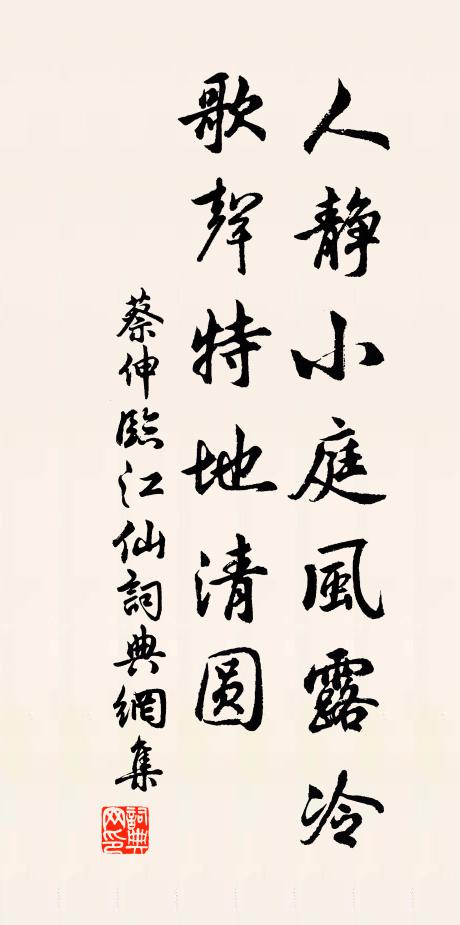 人靜小庭風露冷
歌聲特地清圓
蔡伸臨江仙詞典網集
詞典
网印